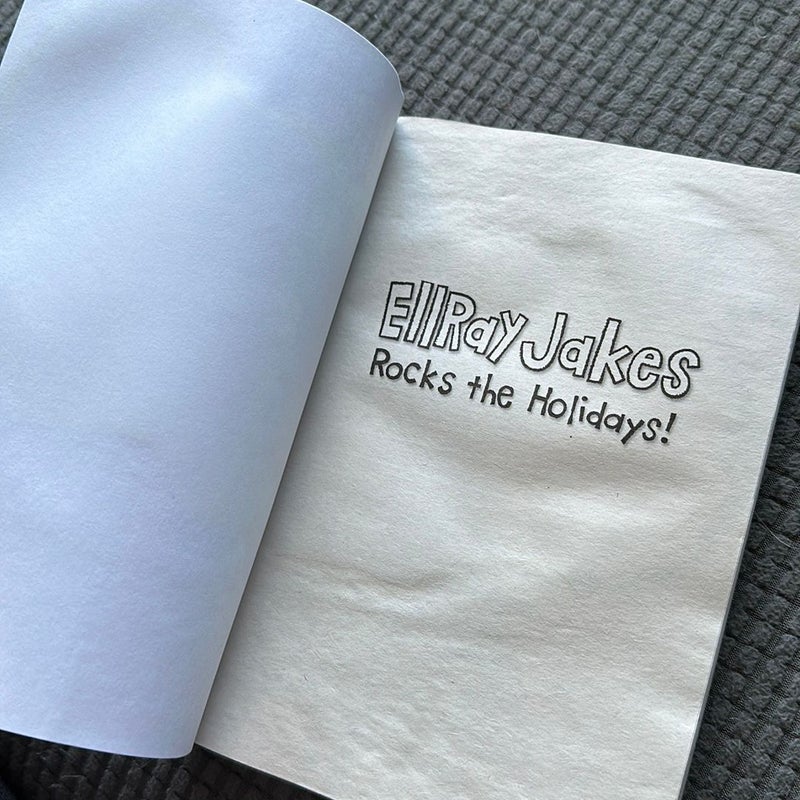 EllRay Jakes
Rocks the Holidays!